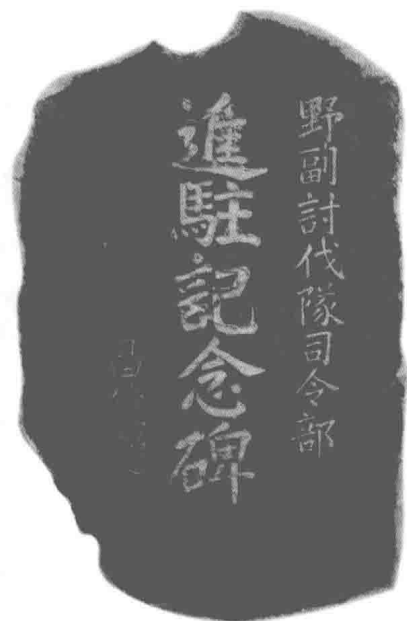 野副討伐隊司令部
進駐記念碑